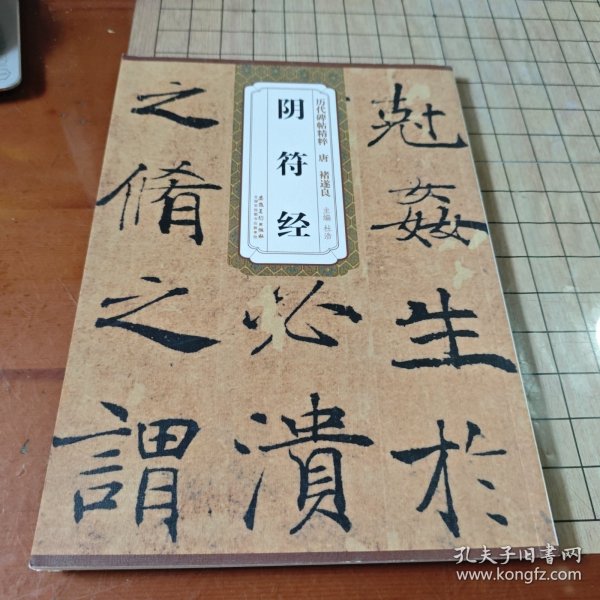 尅姦生於
必潰
之脩之謂
历代碑帖精粹 唐 褚遂良
主编 杜浩
阴符经
安徽美术出版社
孔夫子旧书网
www.kongfz.com